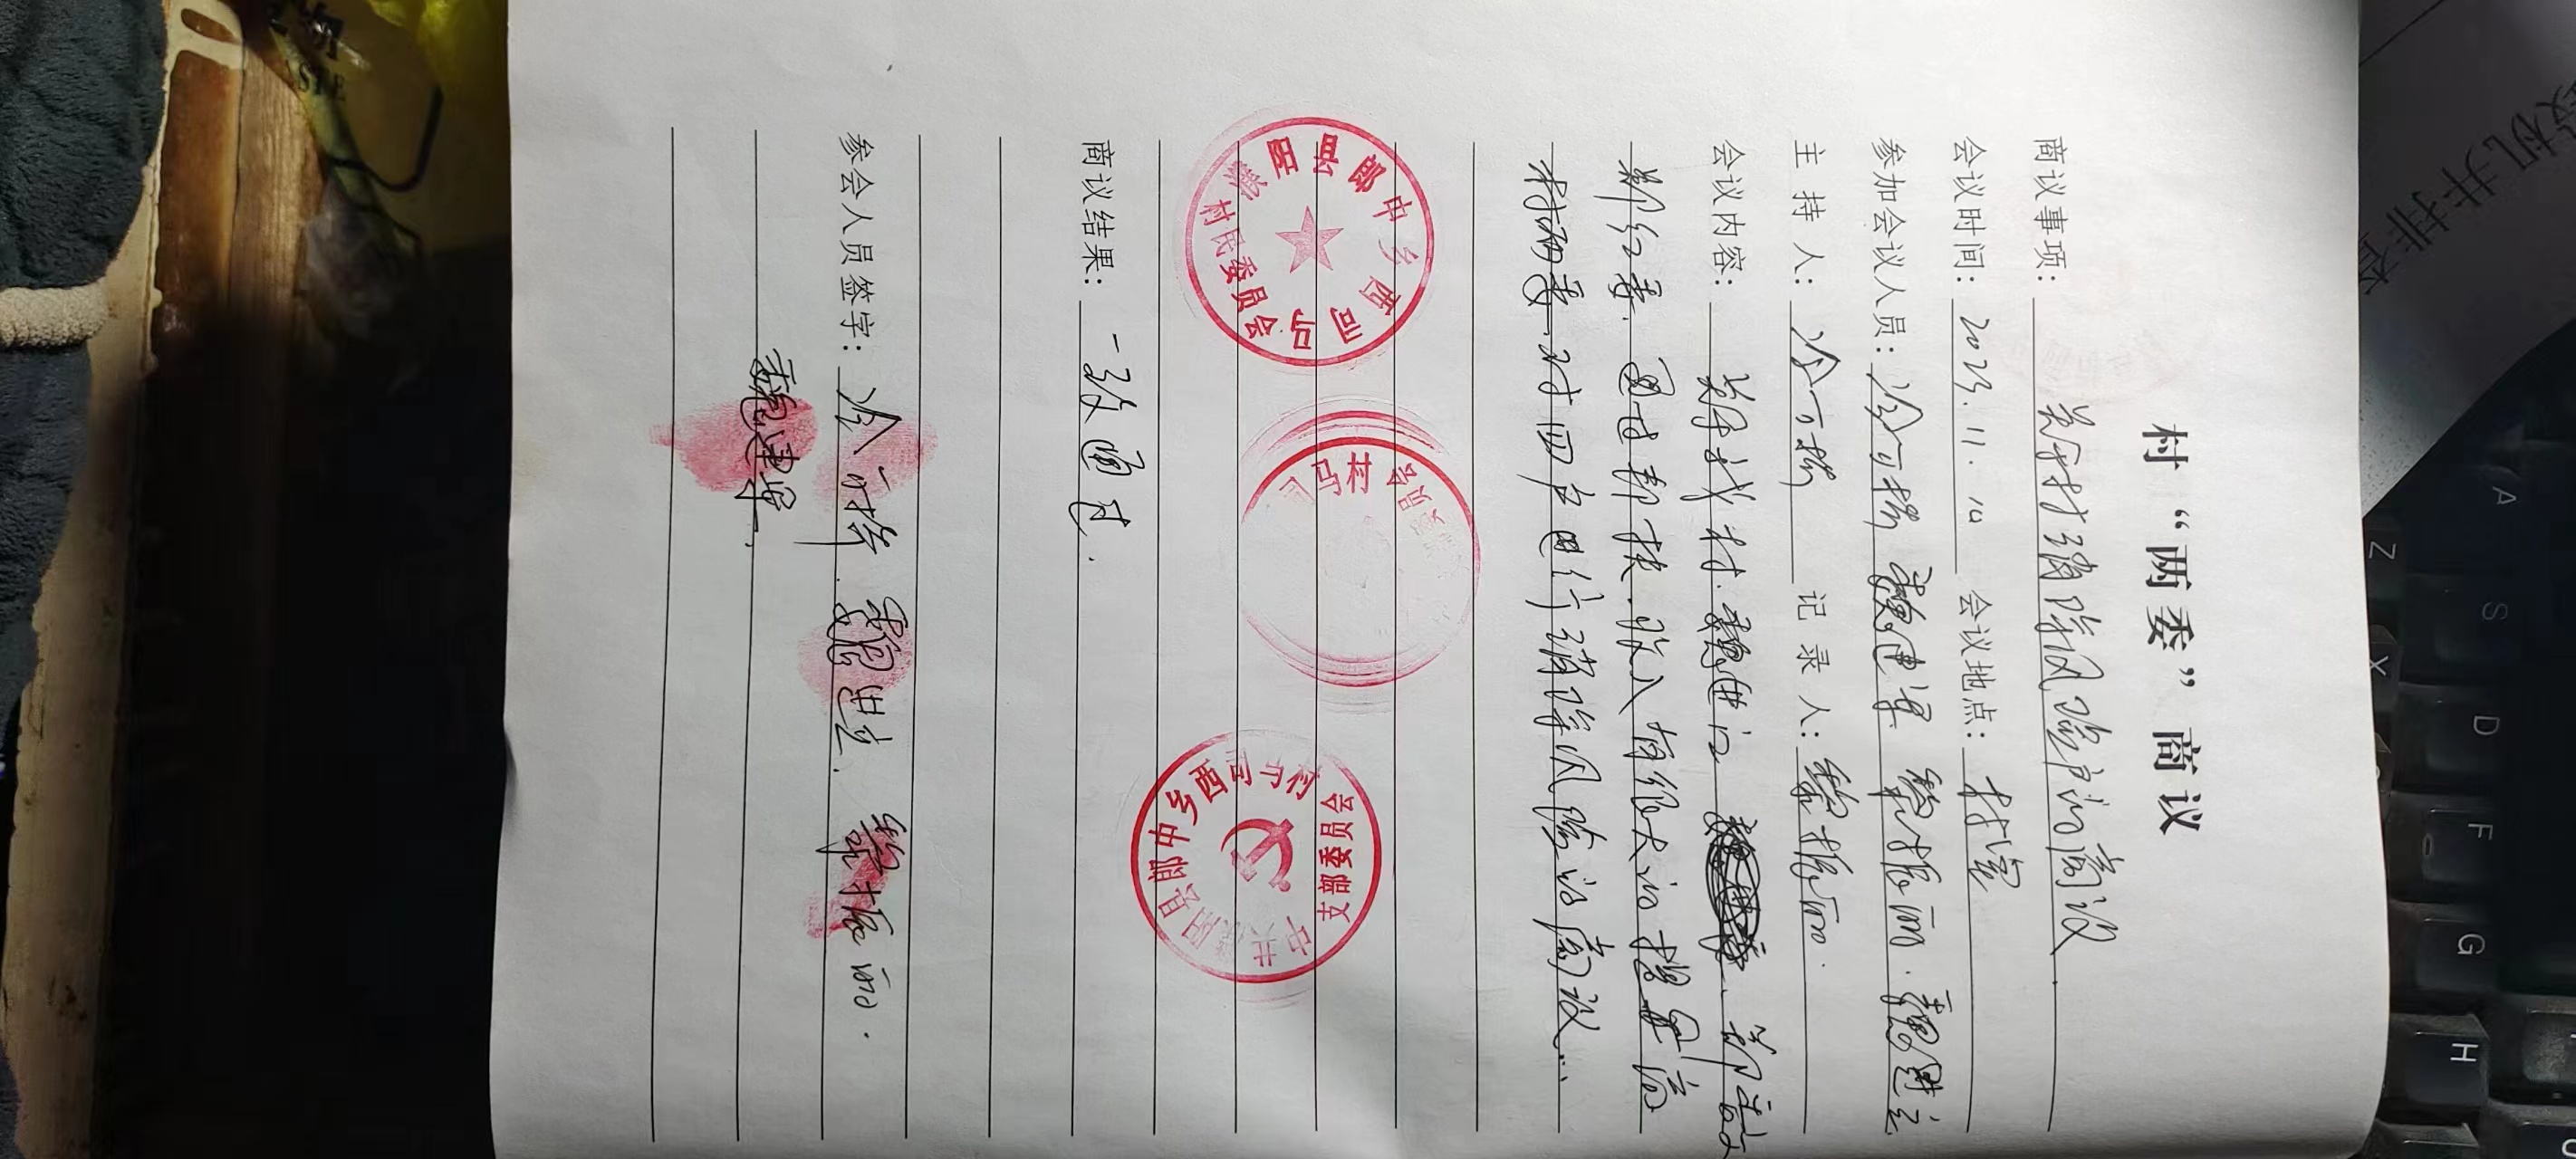 段机井排查
A S D F G H
Z X
村“两委”商议
商议事项: 关于村消除风险户的商议.
会议时间: 2023.11.10 会议地点: 村室
参加会议人员: 冷 魏建 黎振丽. 魏进立
主 持 人: 冷 记 录 人: 黎振丽.
会议内容: 关于我村.魏进江 、郑
郑红委.通过帮扶.收入有很大的提高
村两委.对四户进行消除风险的商议...
濮阳县郎中乡西司马
村民委员会
司马村
委员会
中共濮阳县郎中乡西司马村
支部委员会
商议结果: 一致通过.
参会人员签字: 冷 . 魏进立. 黎振丽.
魏建